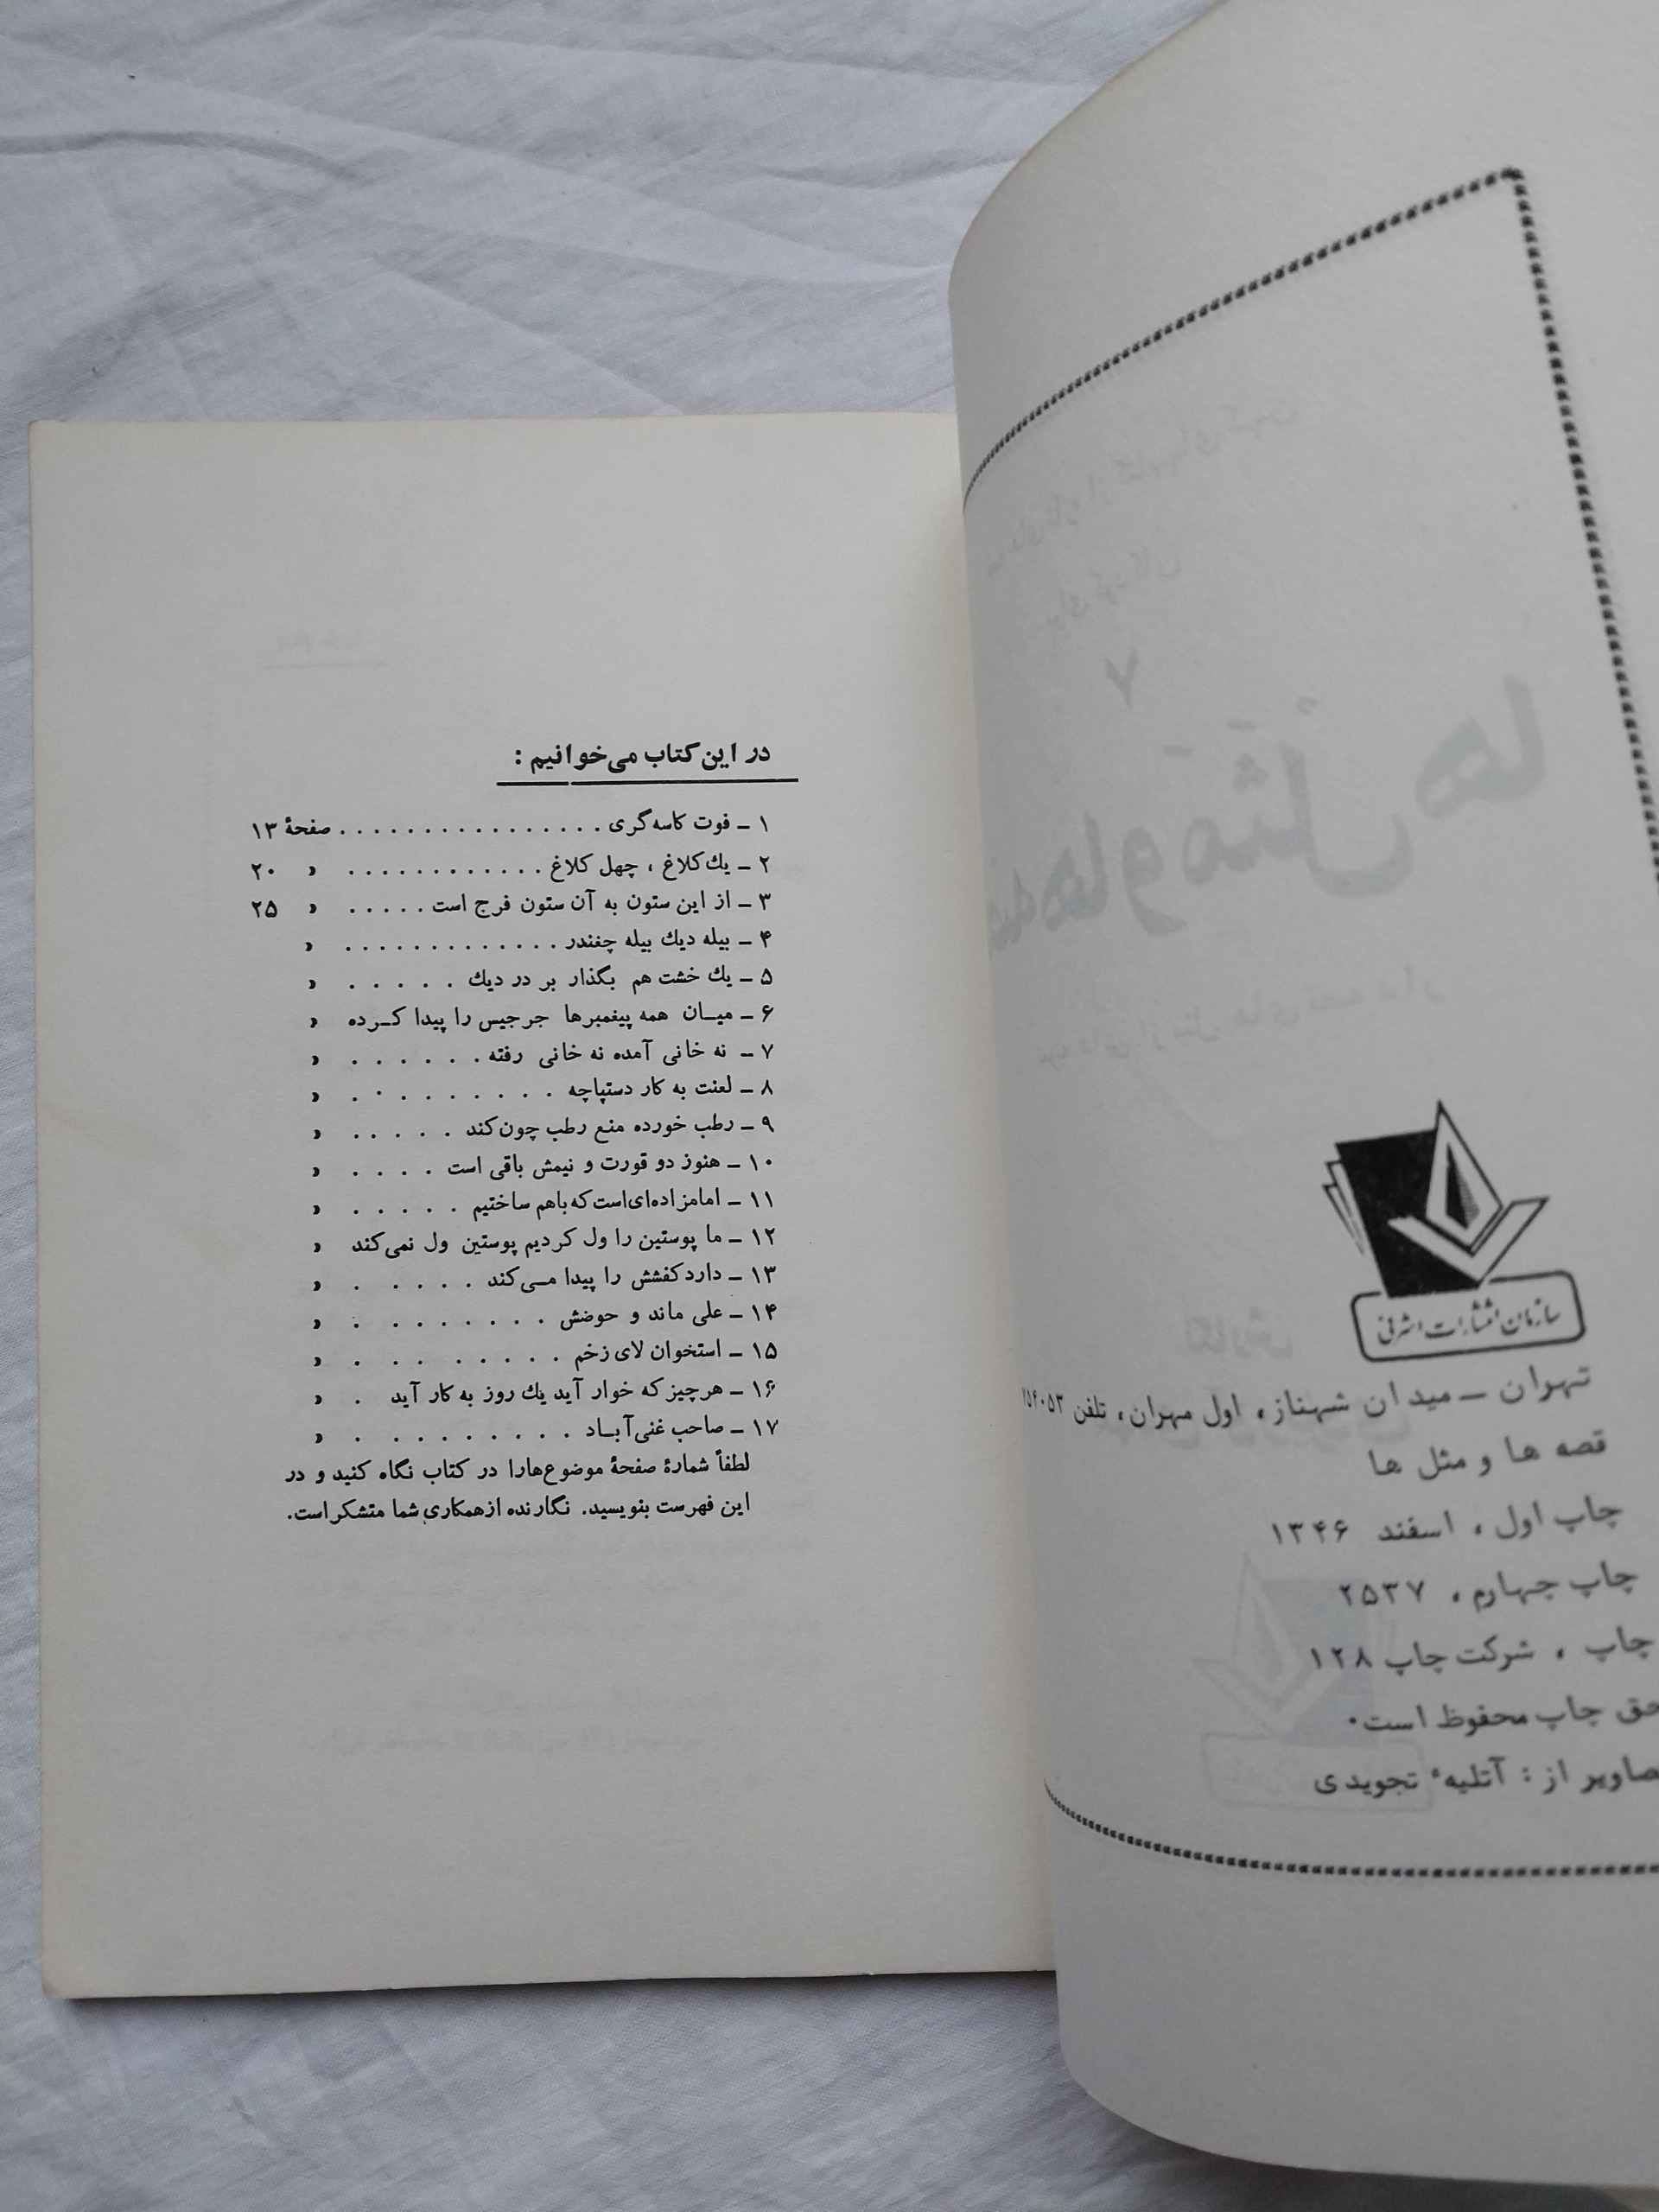 سازمان انتشارات اشرفی
تهران ــ میدان شهناز، اول مهران، تلفن ۷۵۴۰۵۳
قصه ها و مثل ها
چاپ اول ، اسفند ۱۳۴۶
چاپ چهارم ، ۲۵۳۷
چاپ ، شرکت چاپ ۱۲۸
حق چاپ محفوظ است.
تصاویر از : آتلیهٔ تجویدی
در این کتاب می‌خوانیم :
۱ ــ فوت کاسه‌گری . . . . . . . . . . . . . . . . صفحهٔ ۱۳
۲ ــ یك کلاغ ، چهل کلاغ . . . . . . . . . . . . » ۲۰
۳ ــ از این ستون به آن ستون فرج است . . . . . » ۲۵
۴ ــ بیله دیك بیله چغندر . . . . . . . . . . . . . »
۵ ــ یك خشت هم بگذار بر در دیك . . . . . »
۶ ــ میــان همه پیغمبرها جرجیس را پیدا کــرده »
۷ ــ نه خانی آمده نه خانی رفته . . . . . . »
۸ ــ لعنت به کار دستپاچه . . . . . . . . . »
۹ ــ رطب خورده منع رطب چون کند . . . . . »
۱۰ ــ هنوز دو قورت و نیمش باقی است . . . . »
۱۱ ــ امامزاده‌ای‌است که باهم ساختیم . . . . . »
۱۲ ــ ما پوستین را ول کردیم پوستین ول نمی‌کند »
۱۳ ــ دارد کفشش را پیدا مــی‌کند . . . . . »
۱۴ ــ علی ماند و حوضش . . . . . . . . »
۱۵ ــ استخوان لای زخم . . . . . . . . »
۱۶ ــ هرچیز که خوار آید یك روز به کار آید . »
۱۷ ــ صاحب غنی‌آبــاد . . . . . . . . . »
لطفاً شمارهٔ صفحهٔ موضوع‌هارا در کتاب نگاه کنید و در
این فهرست بنویسید. نگارنده ازهمکاری شما متشکر است.